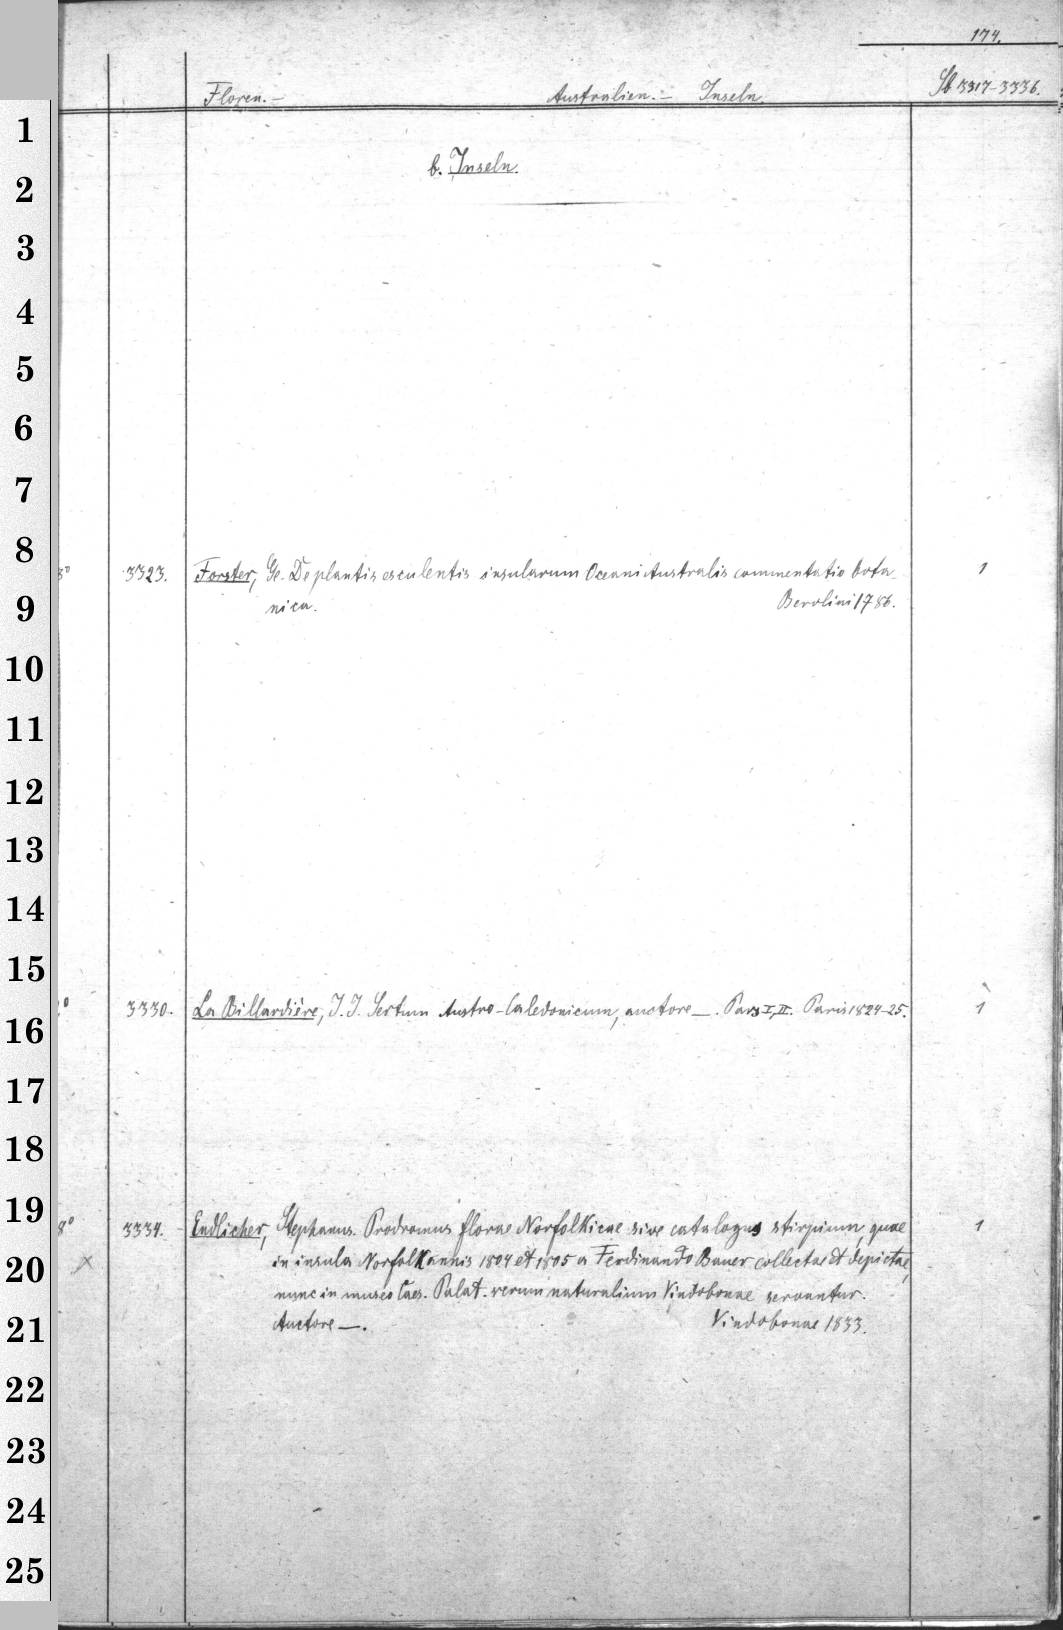 174.
Floren.— Australien.— Inseln. Sb 3317-3336.
b. Inseln.
8° 3323. Forster, Ge. De plantis esculentis insularum Oceani Australis commentatio bota- 1
nica. Berolini 1786.
3330. La Billardière, J. J. Sertum Austro-Caledonicum, auctore —. Pars I, II. Paris 1824-25. 1
8° 3334. Endlicher, Stephanus. Prodromus florae Norfolkicae sive catalogus stirpium, quae 1
× in insula Norfolk annis 1804 et 1805 a Ferdinando Bauer collectae et depictae,
nunc in museo Caes. Palat. rerum naturalium Vindobonae servantur.
Auctore —. Vindobonae 1833.
1
2
3
4
5
6
7
8
9
10
11
12
13
14
15
16
17
18
19
20
21
22
23
24
25